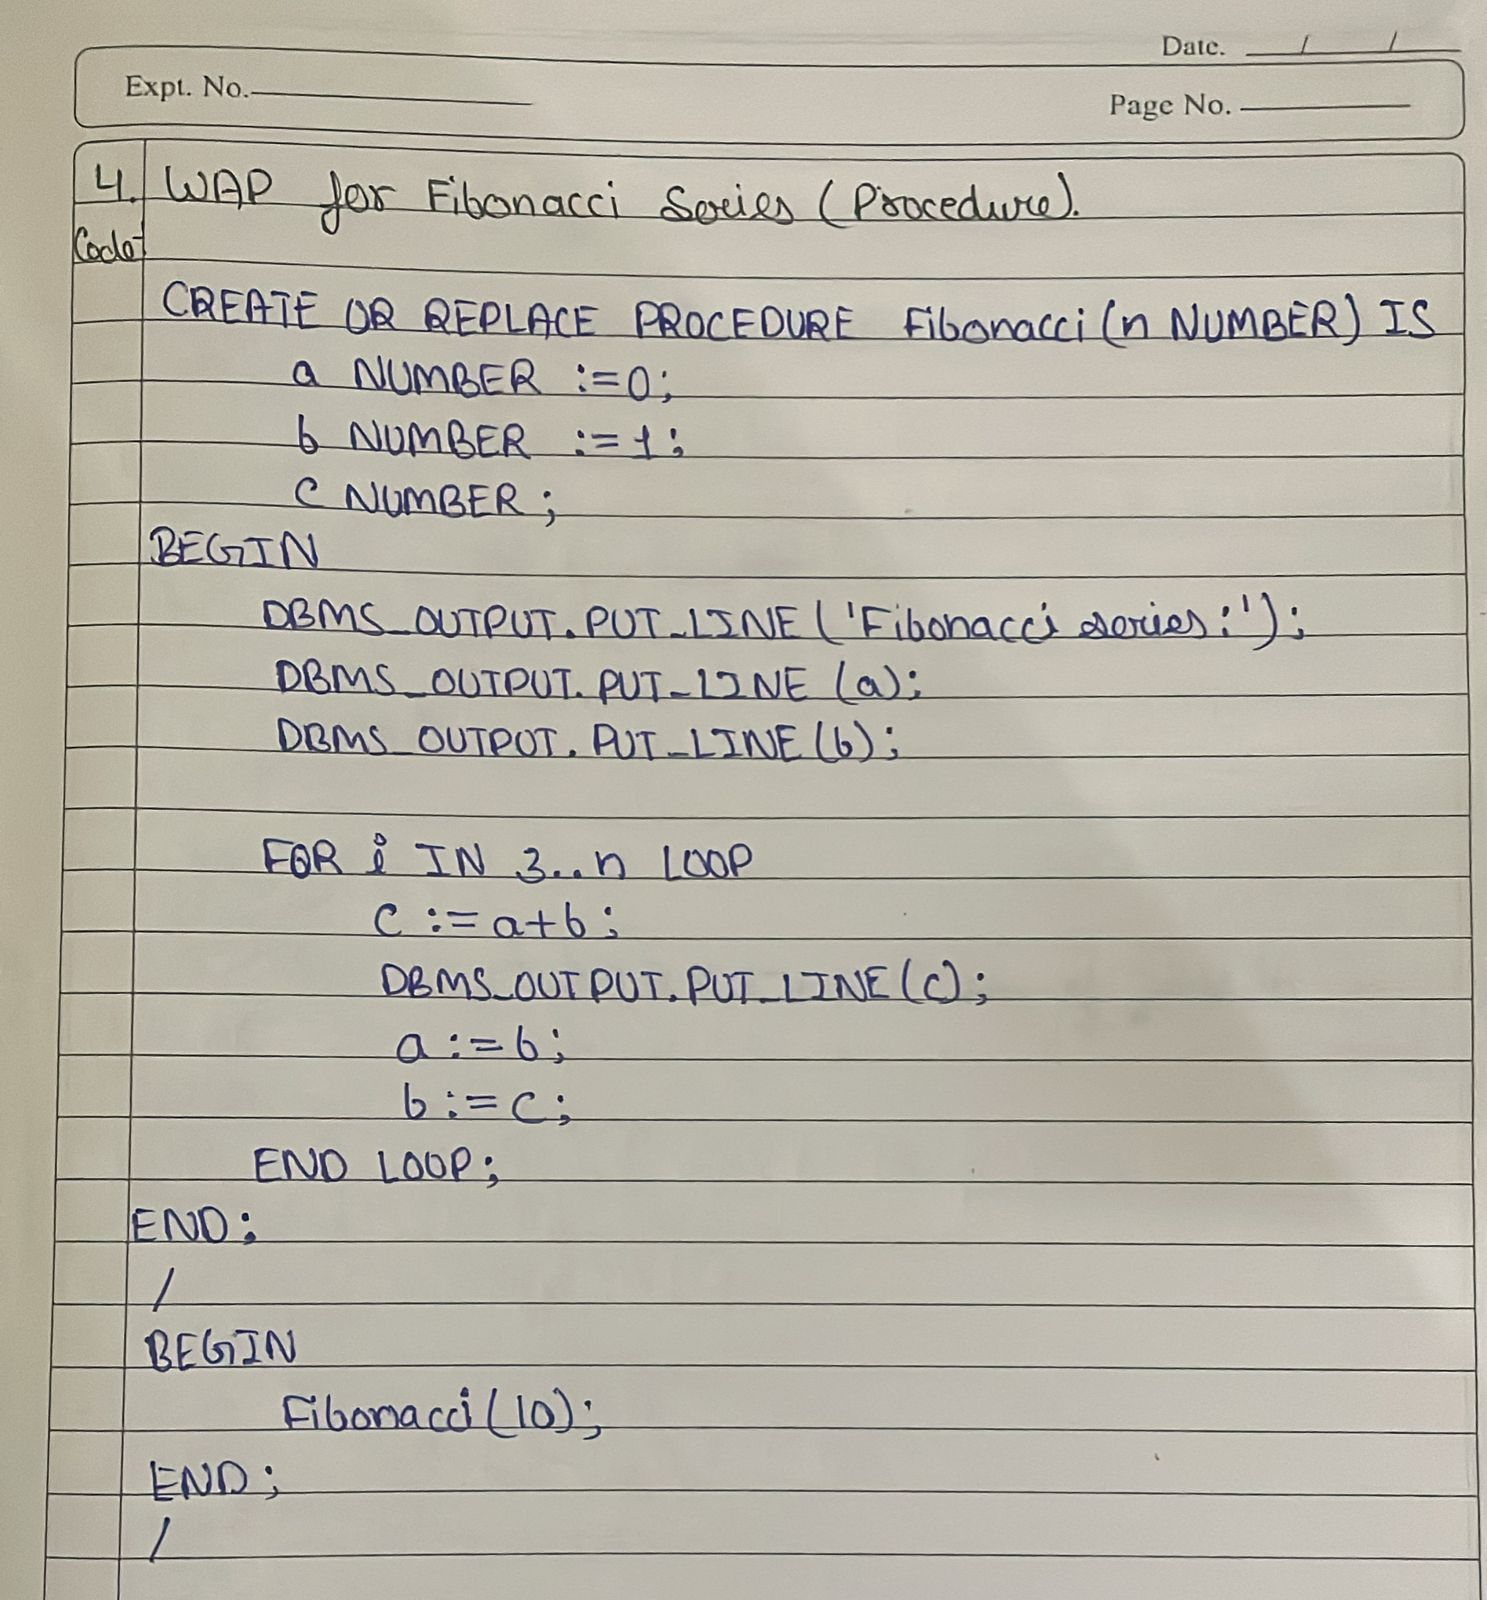 Date. / /
Expt. No.
Page No.
4. WAP for Fibonacci Series (Procedure).
Code:
CREATE OR REPLACE PROCEDURE Fibonacci (n NUMBER) IS
a NUMBER := 0;
b NUMBER := 1;
c NUMBER;
BEGIN
DBMS_OUTPUT.PUT_LINE ('Fibonacci series:');
DBMS_OUTPUT.PUT_LINE (a);
DBMS_OUTPUT.PUT_LINE (b);
FOR i IN 3..n LOOP
c := a+b;
DBMS_OUTPUT.PUT_LINE (c);
a := b;
b := c;
END LOOP;
END;
/
BEGIN
Fibonacci (10);
END;
/